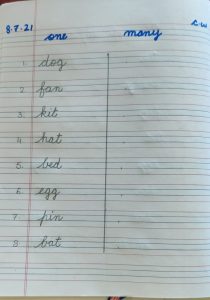 8.7.21 c.w
one many
1. dog
2. fan
3. kit
4. hat
5. bed
6. egg
7. pin
8. bat